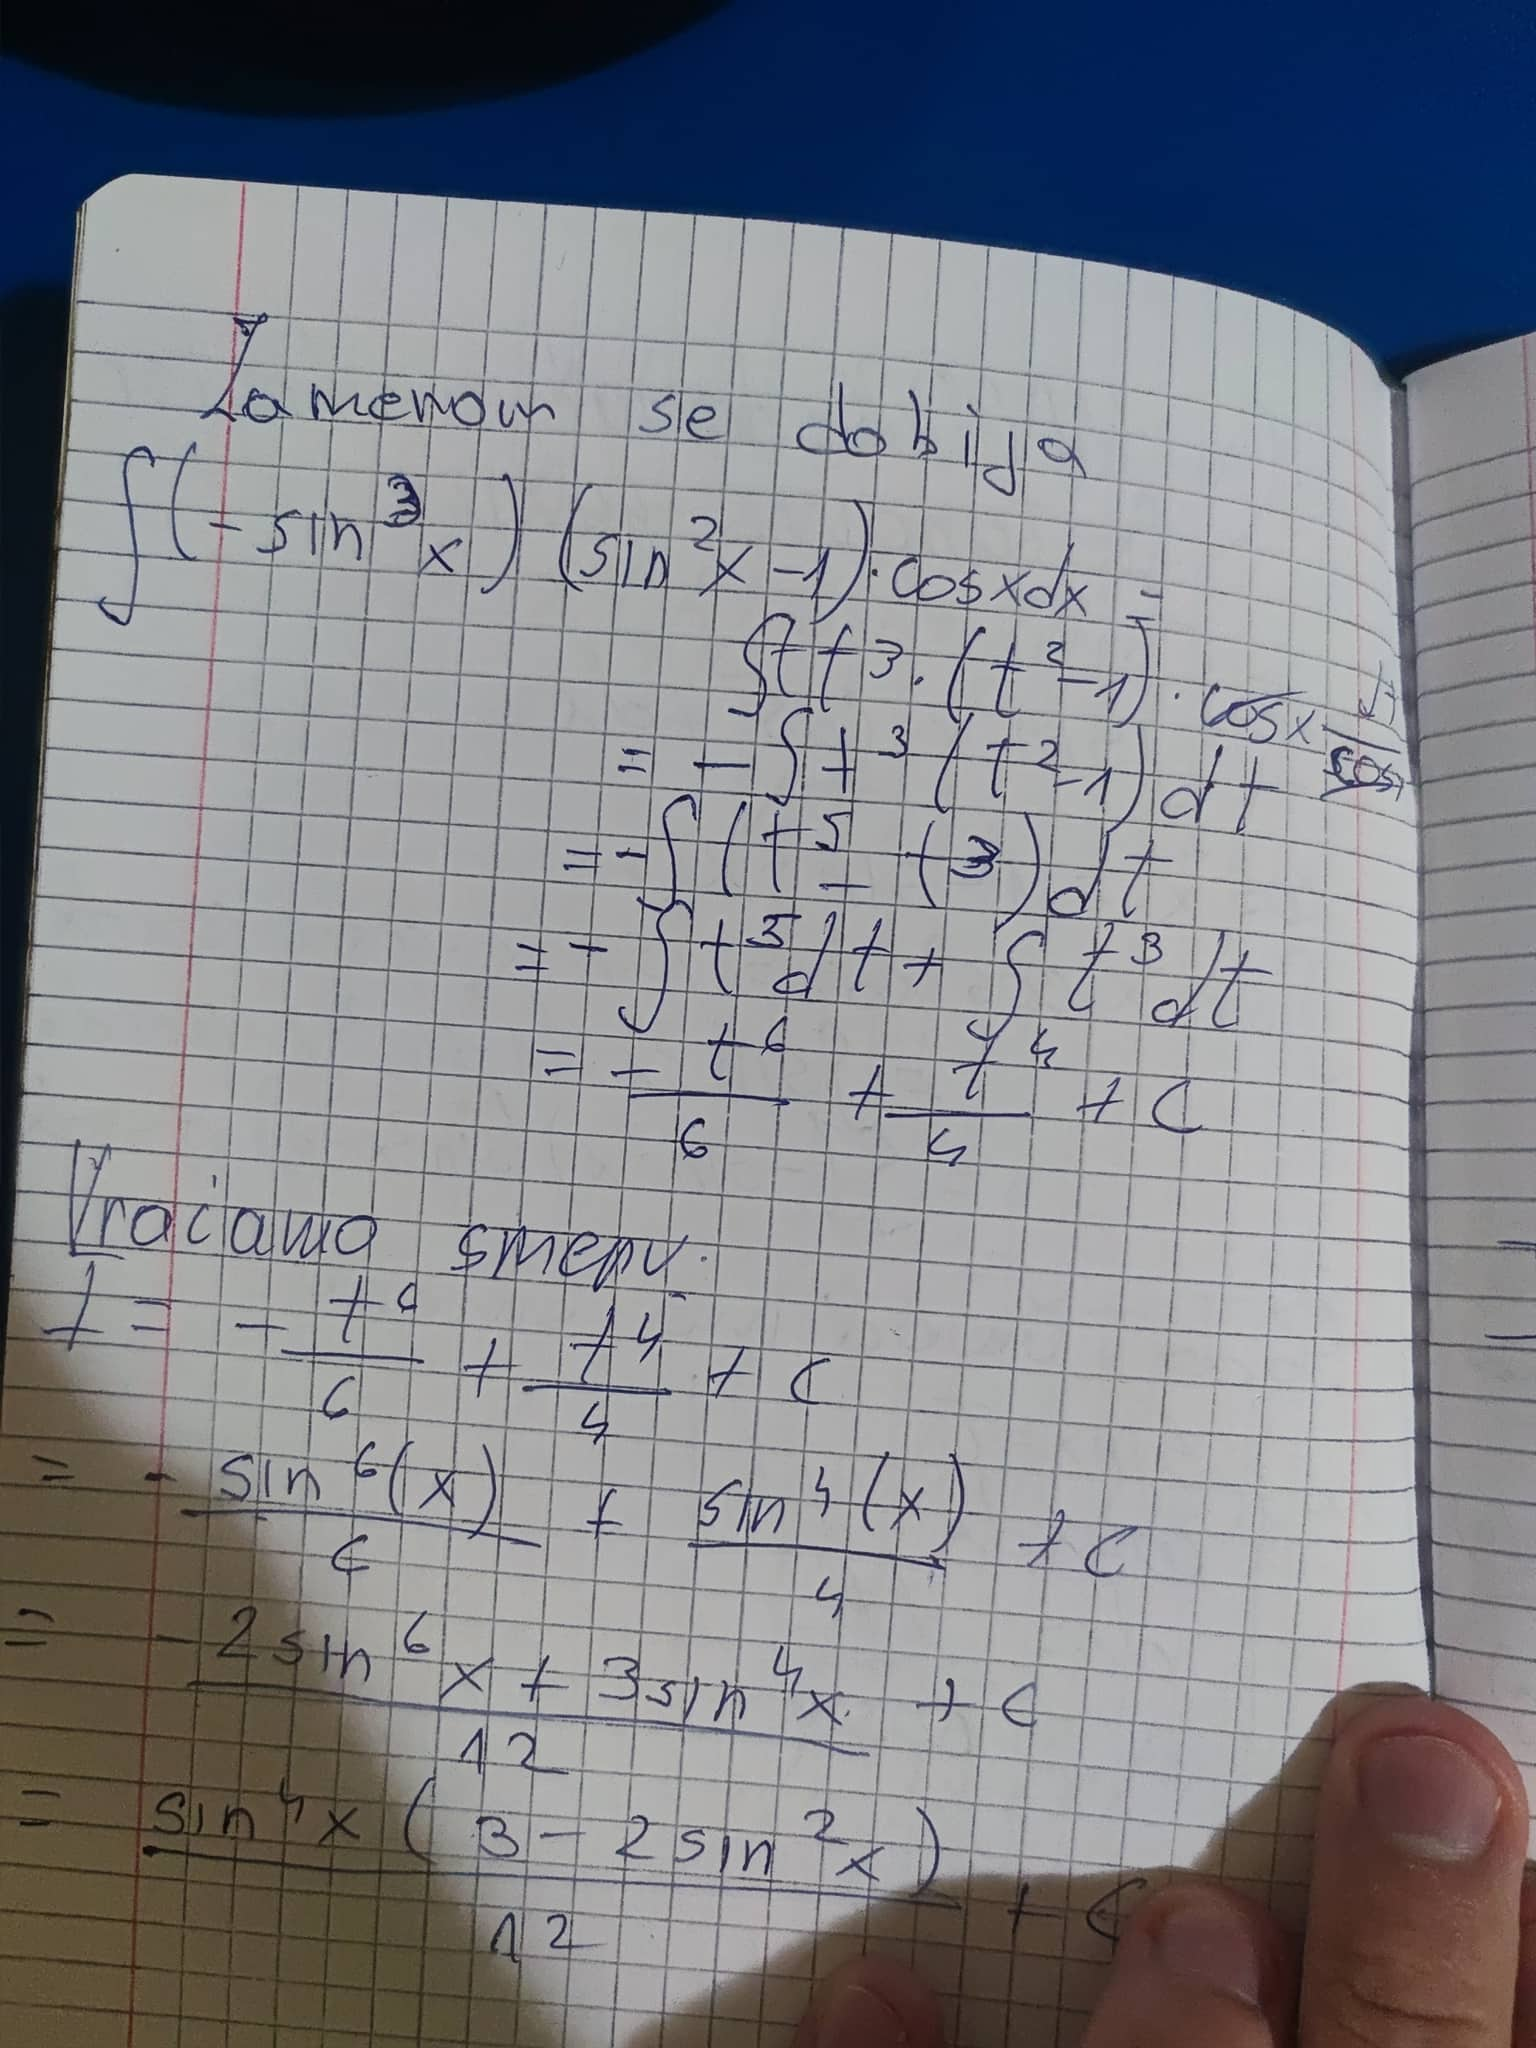 Zamenom se dobija
∫(-sin³x)(sin²x-1)·cosxdx =
∫t t³·(t²-1)·cosx dt/cosx
= -∫t³(t²-1)dt
= -∫(t⁵-t³)dt
= -∫t⁵dt + ∫t³dt
= -t⁶/6 + t⁴/4 + C
Vraćamo smenu.
I = -t⁶/6 + t⁴/4 + C
= -sin⁶(x)/6 + sin⁴(x)/4 + C
= -2sin⁶x + 3sin⁴x/12 + C
= sin⁴x(3-2sin²x)/12 + C